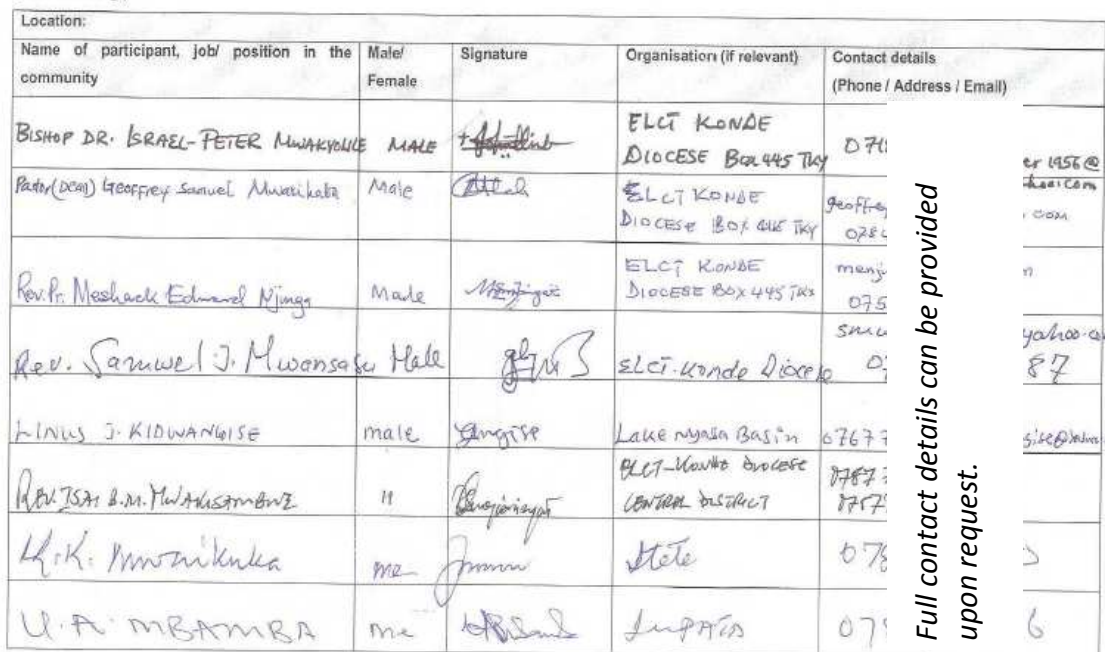 Location:
Name of participant, job/ position in the community
Male/ Female
Signature
Organisation (if relevant)
Contact details
(Phone / Address / Email)
BISHOP DR. ISRAEL-PETER MWAKYOLILE MALE
ELCT KONDE
DIOCESE BOX 445 TKY
er 1956@
Pastor (Dean) Geoffrey Samuel Mwasihata Male
ELCT KONDE
DIOCESE BOX 445 TKY
geoffrey
com
Rev. Pr. Meshack Edward Njinga Male
ELCT KONDE
DIOCESE BOX 445 TKY
menj
075
Rev. Samwel J. Mwansasu Male
ELCT-Konde Diocese
yahoo.co
87
LINUS J. KIDWANGISE male
Lake Nyasa Basin
07677
REV. ISAI B.M. "
ELCT-KONDE DIOCESE
CENTRAL DISTRICT
0787
0757
K.K. me
078
U.A. MBAMBA me
LUPATA
079
6
Full contact details can be provided
upon request.